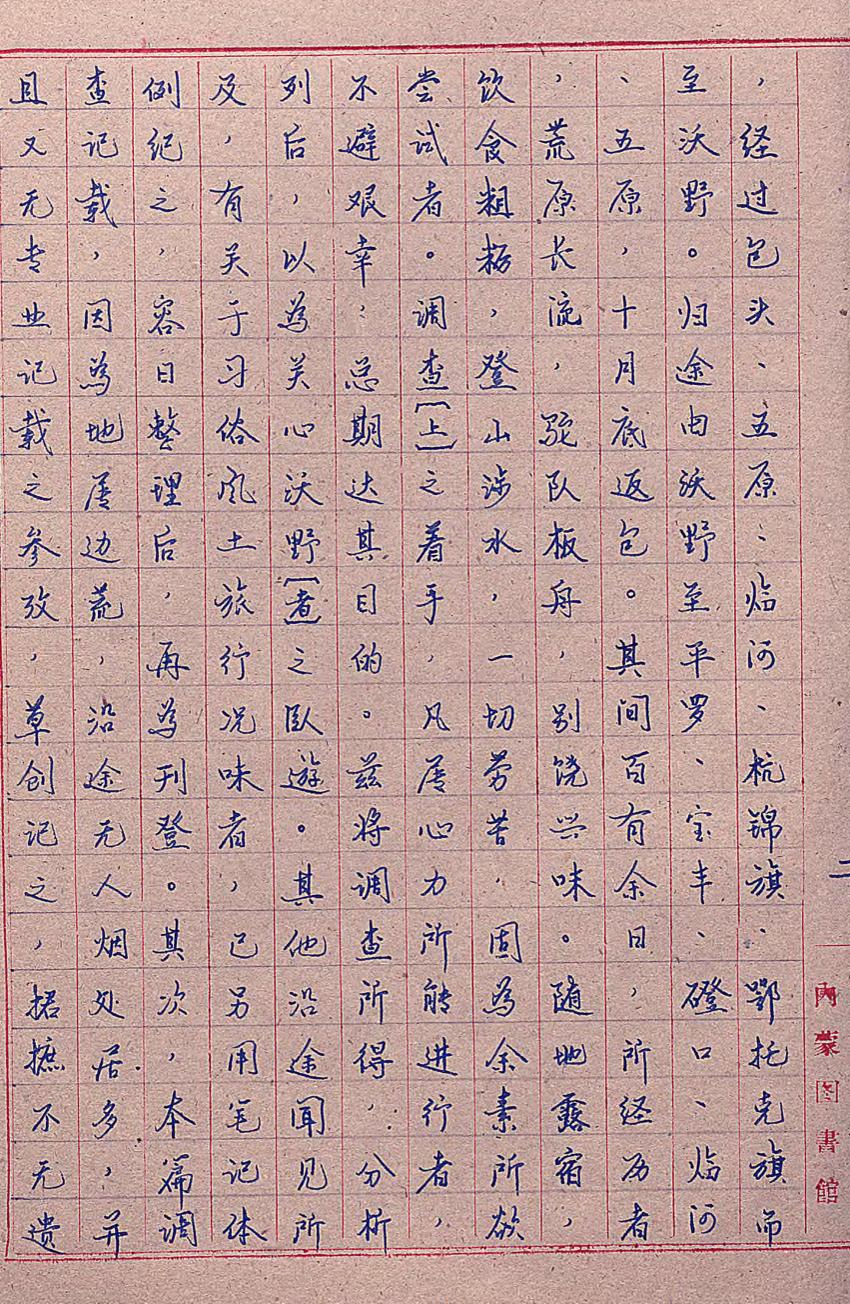 ，经过包头、五原、临河、杭锦旗、鄂托克旗而
至沃野。归途由沃野至平罗、宝丰、磴口、临河
、五原，十月底返包。其间百有余日，所经历者
，荒原长流，驼队板舟，别饶兴味。随地露宿，
饮食粗粝，登山涉水，一切劳苦，固为余素所欲
尝试者。调查［上］之着手，凡属心力所能进行者，
不避艰辛，总期达其目的。兹将调查所得，分析
列后，以为关心沃野［者］之臥遊。其他沿途闻见所
及，有关于习俗风土旅行况味者，已另用笔记体
例纪之，容日整理后，再为刊登。其次，本篇调
查记载，因为地属边荒，沿途无人烟处居多，并
且又无专业记载之参攷，草创记之，捃摭不无遗
二
內蒙图書館